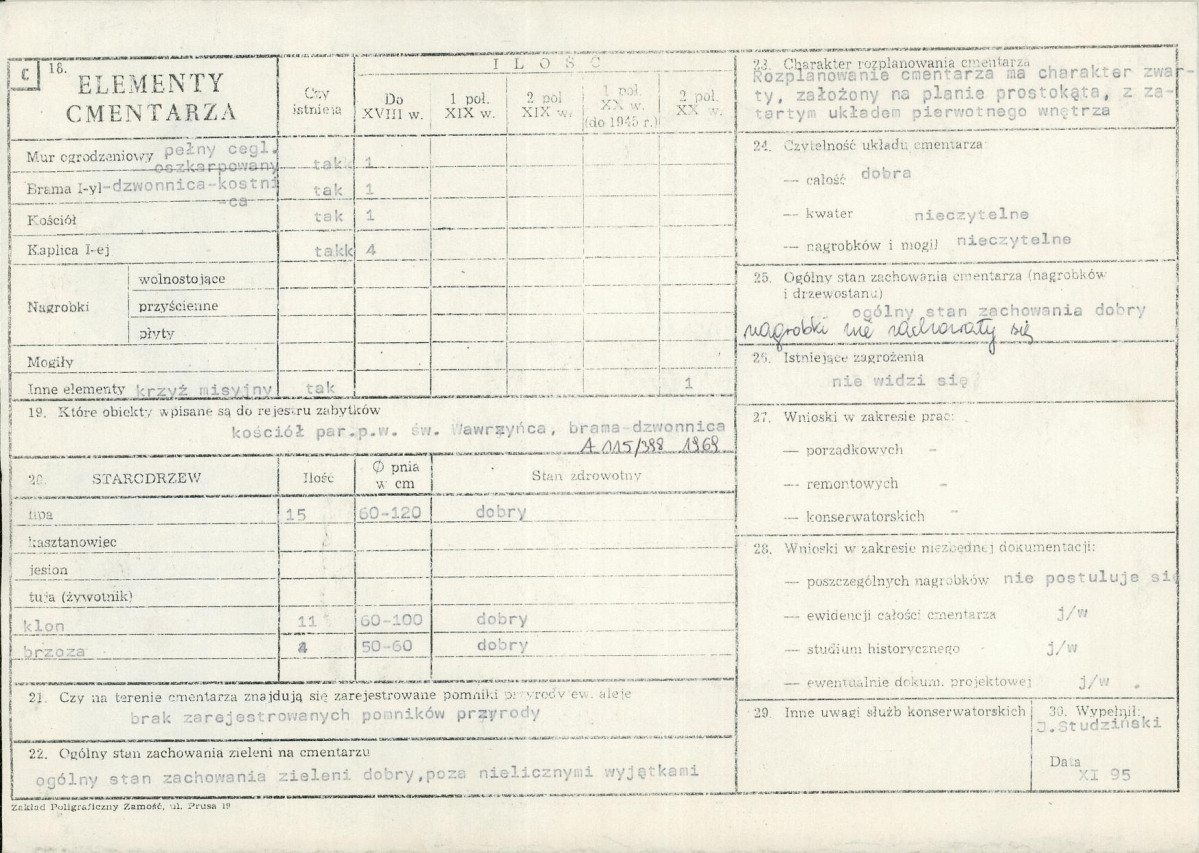 C
18.
ELEMENTY
CMENTARZA
Czy
istnieją
ILOŚĆ
Do
XVIII w.
1 poł.
XIX w.
2 poł
XIX w.
1 poł.
XX w.
(do 1945 r.)
2 poł.
XX w.
Mur ogrodzeniowy pełny cegl.
oszkarpowany takk 1
Brama I-yl-dzwonnica-kostni
-ca tak 1
Kościół tak 1
Kaplica I-ej takk 4
Nagrobki
wolnostojące
przyścienne
płyty
Mogiły
Inne elementy krzyż misyjny tak 1
19. Które obiekty wpisane są do rejestru zabytków
kościół par.p.w. św. Wawrzyńca, brama-dzwonnica
A 115/388 1969
20. STARODRZEW Ilość Ø pnia
w cm
Stan zdrowotny
lipa 15 60-120 dobry
kasztanowiec
jesion
tuja (żywotnik)
klon 11 60-100 dobry
brzoza 4 50-60 dobry
21. Czy na terenie cmentarza znajdują się zarejestrowane pomniki przyrody ew. aleje
brak zarejestrowanych pomników przyrody
22. Ogólny stan zachowania zieleni na cmentarzu
ogólny stan zachowania zieleni dobry,poza nielicznymi wyjątkami
Zakład Poligraficzny Zamość, ul. Prusa 19
23. Charakter rozplanowania cmentarza
Rozplanowanie cmentarza ma charakter zwar-
ty, założony na planie prostokąta, z za-
tartym układem pierwotnego wnętrza
24. Czytelność układu cmentarza
— całość dobra
— kwater nieczytelne
— nagrobków i mogił nieczytelne
25. Ogólny stan zachowania cmentarza (nagrobków
i drzewostanu)
ogólny stan zachowania dobry
nagrobki nie zachowały się
26. Istniejące zagrożenia
nie widzi się
27. Wnioski w zakresie prac:
— porządkowych -
— remontowych -
— konserwatorskich -
28. Wnioski w zakresie niezbędnej dokumentacji:
— poszczególnych nagrobków nie postuluje się
— ewidencji całości cmentarza j/w
— studium historycznego j/w
— ewentualnie dokum. projektowej j/w .
29. Inne uwagi służb konserwatorskich
30. Wypełnił:
J.Studziński
Data
XI 95